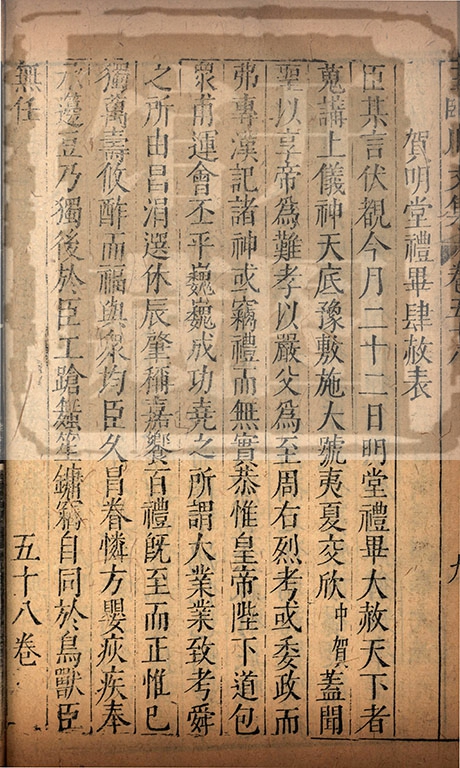 王臨川文集卷五十八 九
賀明堂禮畢肆赦表
臣某言伏觀今月二十二日明堂禮畢大赦天下者
蒐講上儀神天底豫敷施大號夷夏交欣中賀蓋聞
聖以享帝為難孝以嚴父為至周右烈考或委政而
弗專漢記諸神或竊禮而無實恭惟皇帝陛下道包
衆甫運會丕平巍巍成功堯之所謂大業業致考舜
之所由昌涓選休辰肇稱嘉饗百禮旣至而正惟巳
獨萬壽攸酢而福與衆均臣久昌眷憐方嬰疢疾奉
承籩豆乃獨後於臣工蹌舞笙鏞竊自同於鳥獸臣
無任
五十八卷